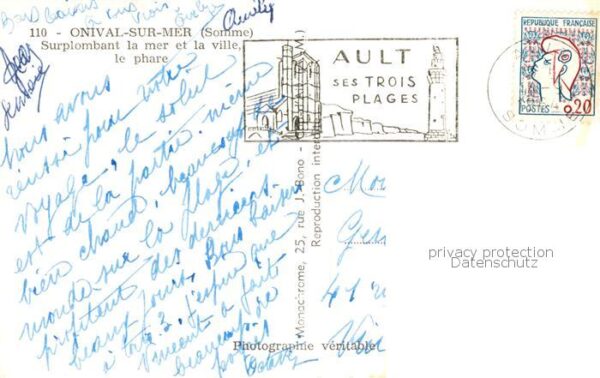 Bons baisers
à vous trois
Evelyne
110 - ONIVAL-SUR-MER (Somme)
Surplombant la mer et la ville,
le phare
Nous avons
réussi pour notre
voyage, le soleil
est de la partie, même
bien chaud, beaucoup de
monde sur la plage, et
profitent des derniers
beaux jours. Bons Baisers
à tous 3, j'espère que
Vincent a fait
beaucoup de
Octave
Monochrome, 25, rue J. Bono
Reproduction inter
Photographie véritable
AULT
SES TROIS
PLAGES
REPUBLIQUE FRANÇAISE
POSTES 0,20
SOMME
privacy protection
Datenschutz